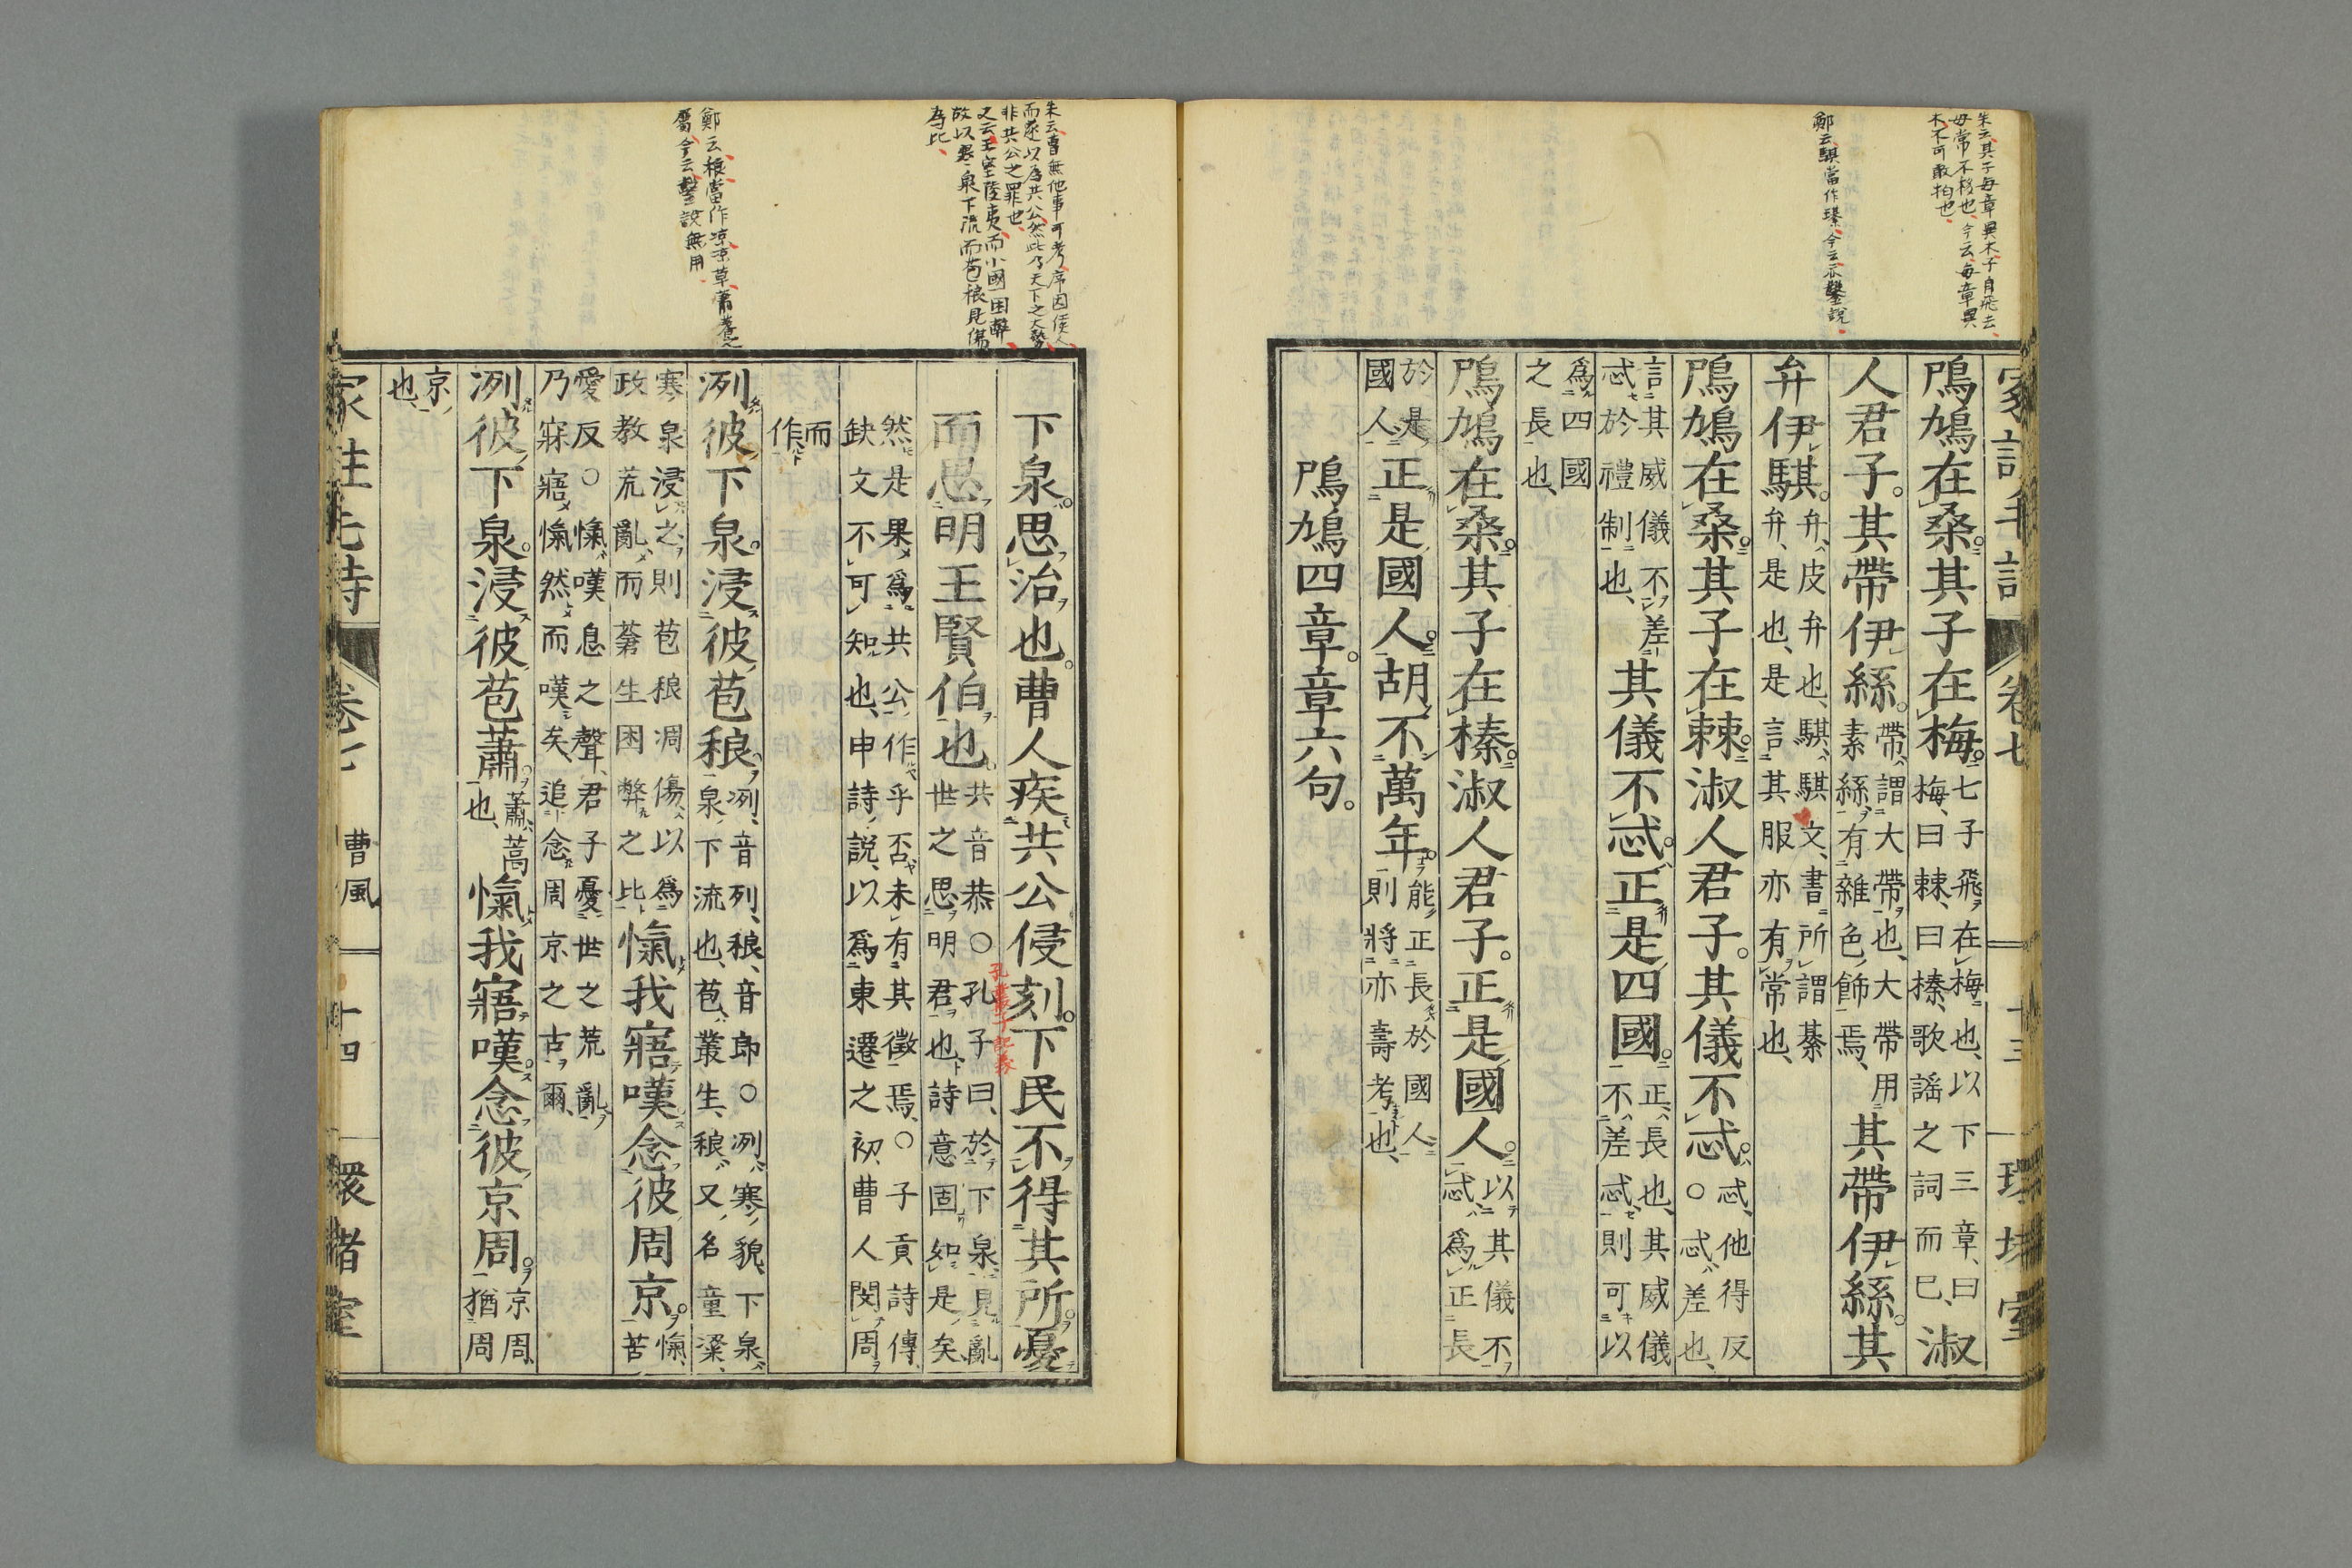 朱云其子每章異木子自飛去
母常不移也今云每章異
木不可敢拘也
鄭云騏當作瑧今云亦鑿說
鳲鳩在桑其子在梅七子飛在梅也以下三章曰
梅曰棘曰榛歌謠之詞而已淑
人君子其帶伊絲帶謂大帶也大帶用
素絲有雜色飾焉其帶伊絲其
弁伊騏弁皮弁也騏騏文書所謂綦
弁是也是言其服亦有常也
鳲鳩在桑其子在棘淑人君子其儀不忒忒他得反
○忒差也
言其威儀不差
忒於禮制也其儀不忒正是四國正長也其威儀
不差忒則可以
爲四國
之長也
鳲鳩在桑其子在榛淑人君子正是國人以其儀不
忒爲正長
於是
國人正是國人胡不萬年能正長於國人
則將亦壽考也
鳲鳩四章章六句
卷七
十三
環堵室
朱云曹無他事可考序因侯人
而遂以為共公然此乃天下之大勢
非共公之罪也
又云王室陵夷而小國困弊
故以寒泉下流而苞稂見傷
為比
鄭云稂當作凉凉草蕭蓍之
屬今云鑿說無用
下泉思治也曹人疾共公侵刻下民不得其所憂
而思明王賢伯也共音恭○孔子曰於下泉見亂
世之思明君也詩意固如是矣
孔叢子記義
然是果爲共公作乎否未有其徵焉○子貢詩傳
缺文不可知也申詩說以爲東遷之初曹人閔周
而
作
洌彼下泉浸彼苞稂洌音列稂音郎○洌寒貌下泉
泉下流也苞叢生稂又名童粱
寒泉浸之則苞稂凋傷以爲
政教荒亂而萫生困弊之比愾我寤嘆念彼周京愾
苦
愛反○愾嘆息之聲君子憂世之荒亂
乃寐寤愾然而嘆矣追念周京之古爾
洌彼下泉浸彼苞蕭蕭蒿
也愾我寤嘆念彼京周京周
猶周
京
也
家註毛詩
卷七
曹風
十四
環堵室